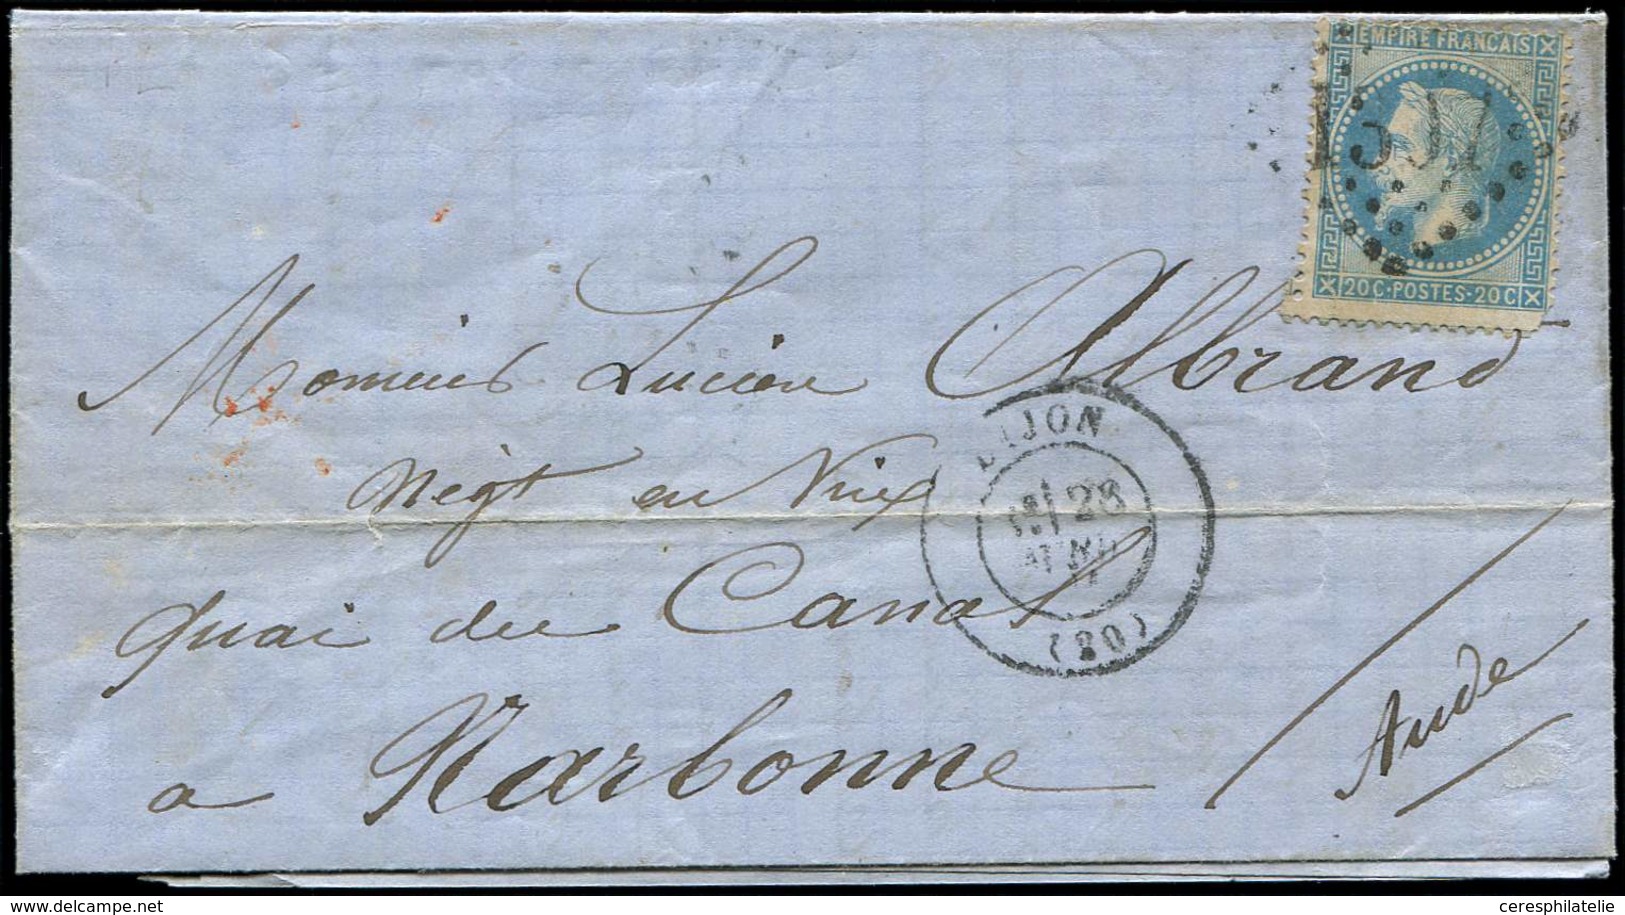 EMPIRE FRANÇAIS
20 C · POSTES · 20 C
Monsieur Lucien Albrand
Négt en Vins
Quai du Canal
à Narbonne
Aude
DIJON
28
AVRIL
(20)
www.delcampe.net
ceresphilatelie